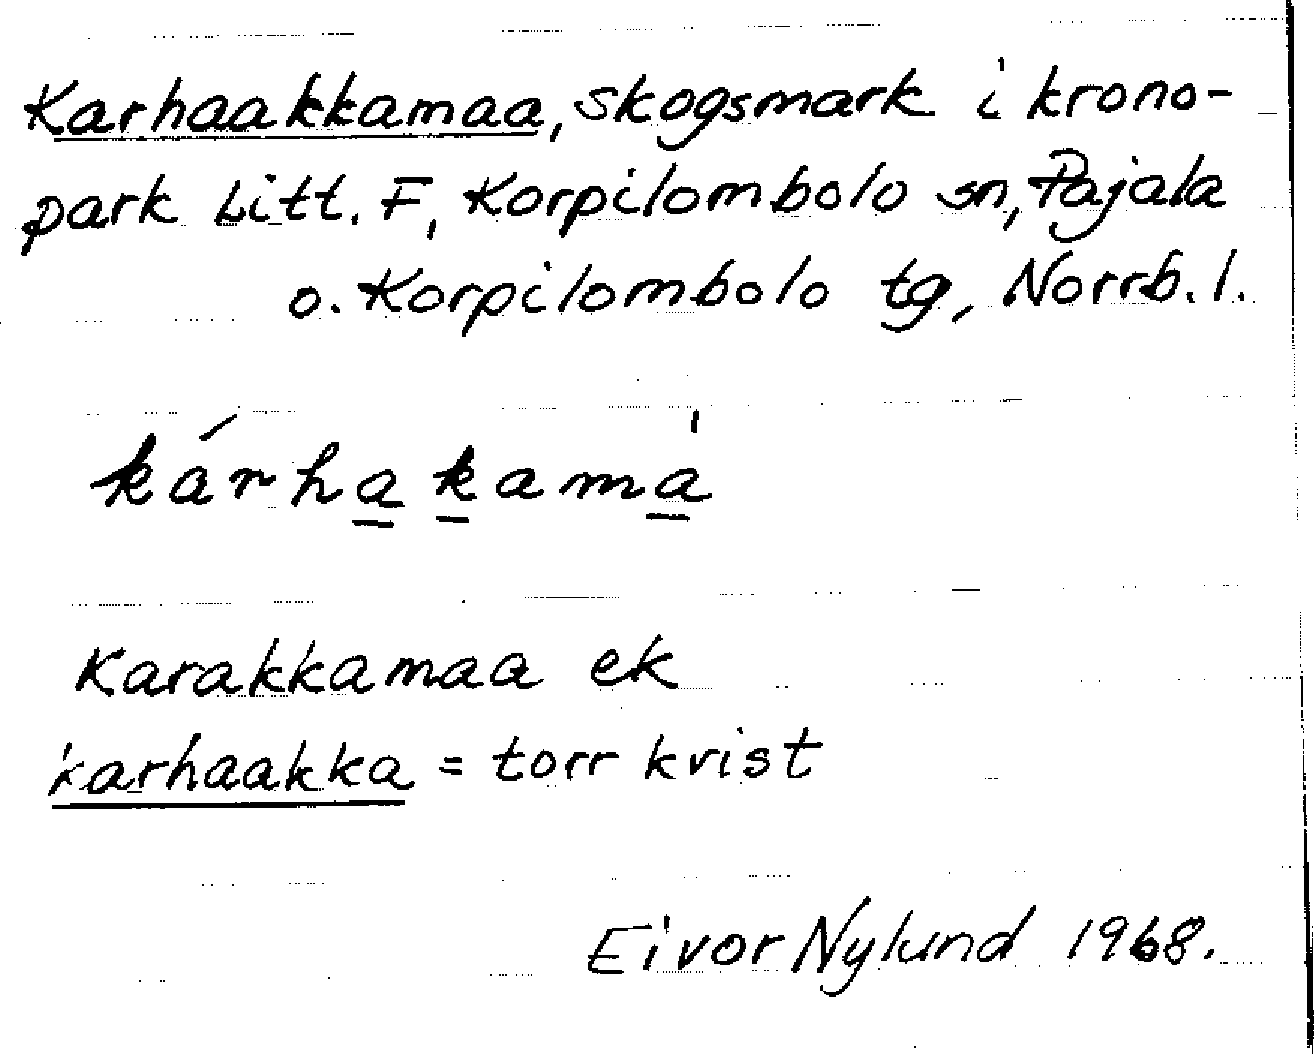 Karhaakkamaa, skogsmark i krono-
park Litt. F, Korpilombolo sn, Pajala
o. Korpilombolo tg, Norrb. l.
kárha̲k̲ama̲̍
Karakkamaa ek
karhaakka = torr kvist
Eivor Nylund 1968.